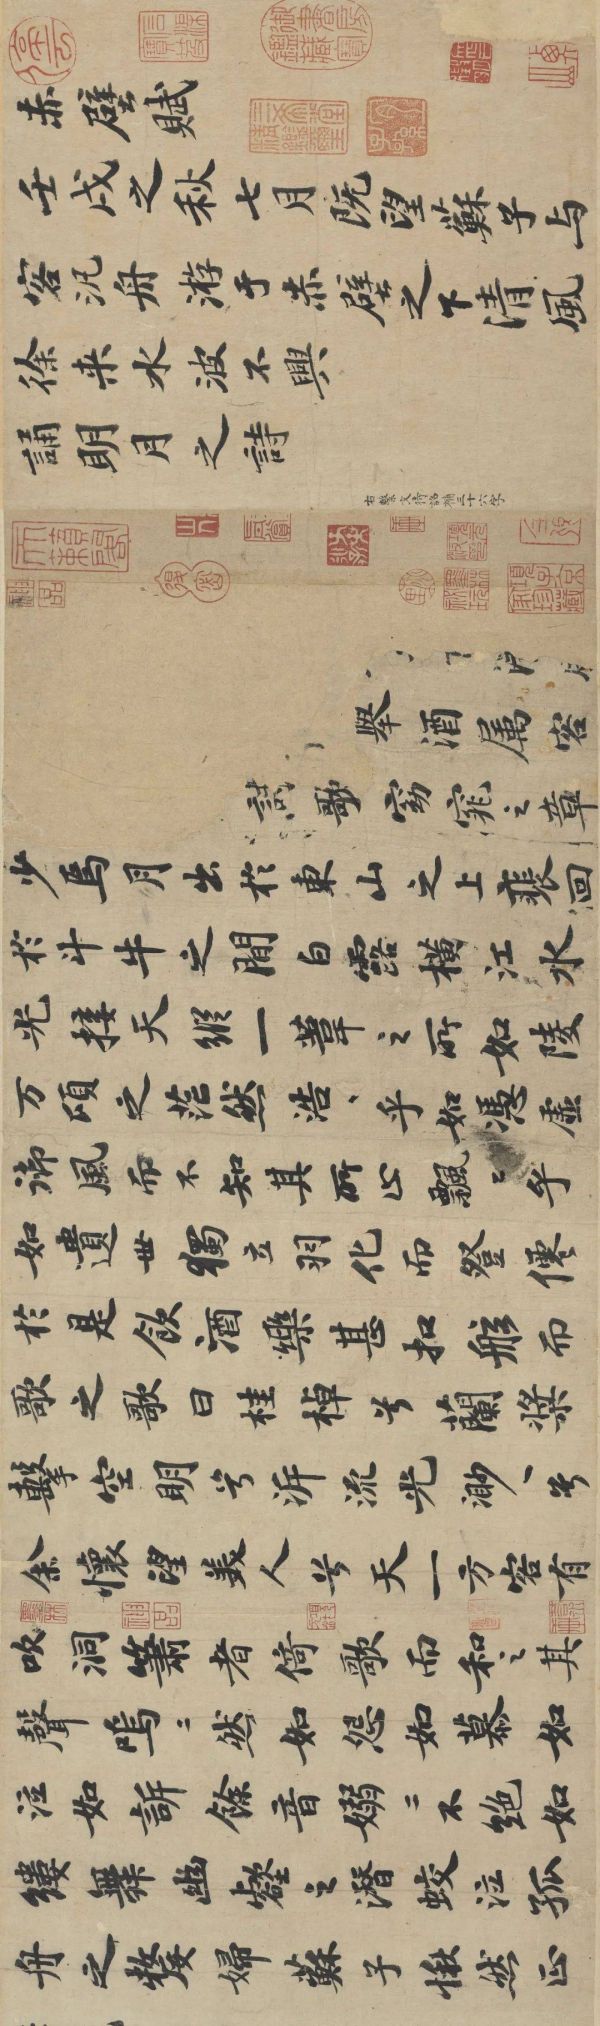 赤壁賦
壬戌之秋七月既望蘇子与
客汎舟游于赤壁之下清風
徐来水波不興
誦明月之詩
右繫文待詔補三十六字
舉酒属客
歌窈窕之章
少焉月出於東山之上裴回
於斗牛之間白露橫江水
光接天縱一葦之所如陵
万頃之茫然浩、乎如憑虛
御風而不知其所止飄〻乎
如遺世獨立羽化而登僊
於是飲酒樂甚扣舷而
歌之歌曰桂棹兮蘭槳
擊空明兮泝流光渺、兮
余懷望美人兮天一方客有
吹洞簫者倚歌而和之其
聲嗚〻然如怨如慕如
泣如訴餘音嫋〻不絕如
縷舞幽壑之潛蛟泣孤
舟之嫠婦蘇子愀然正